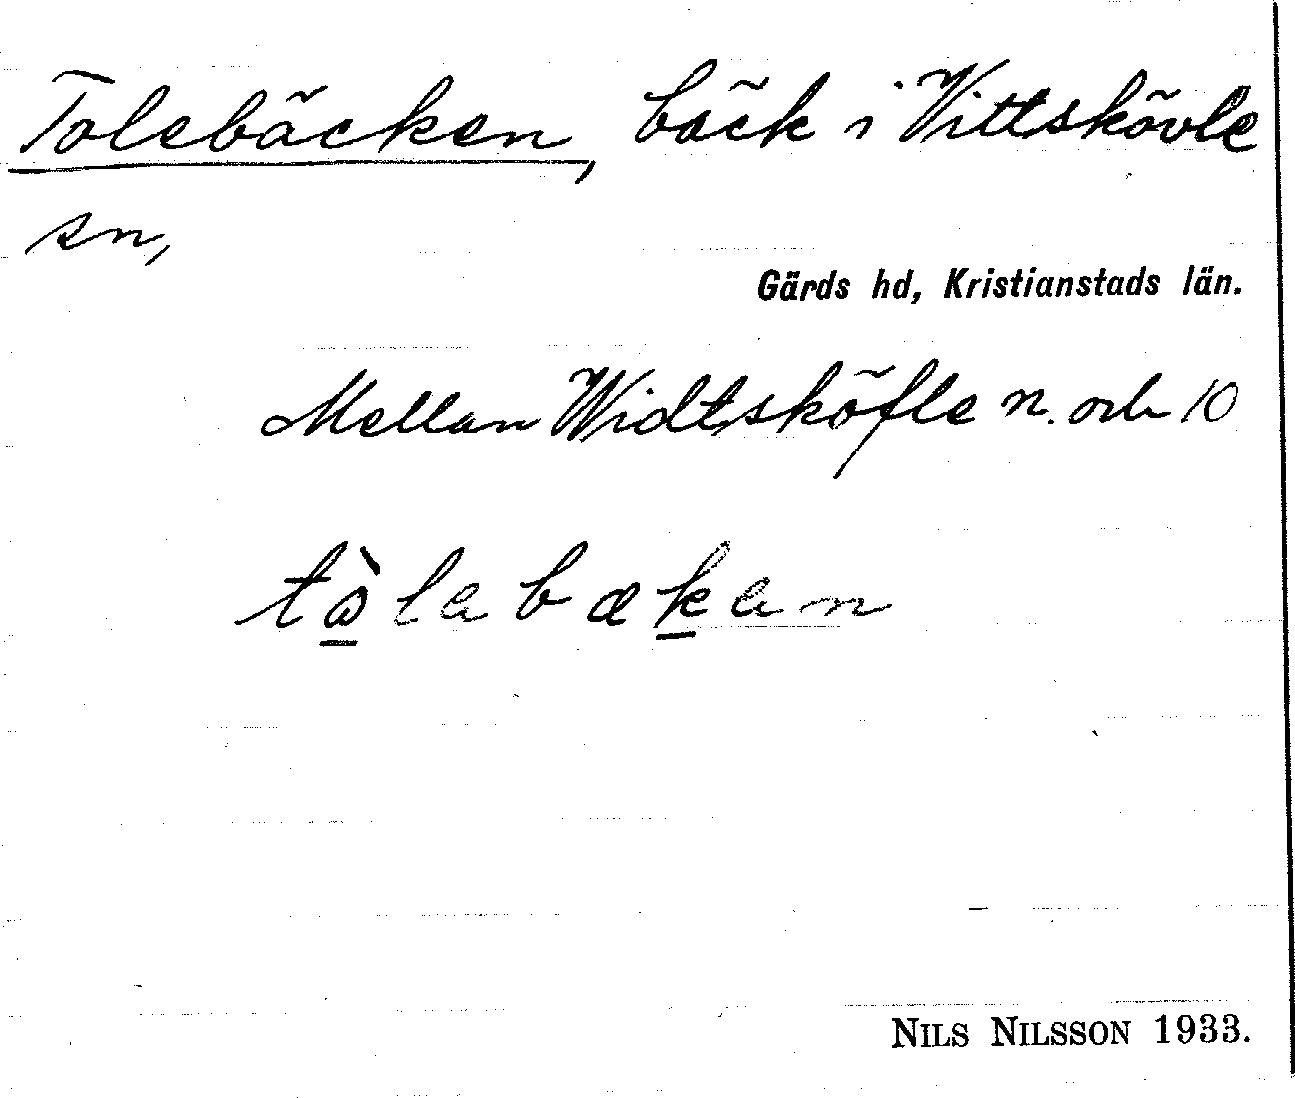 Tolebäcken, bäck i Vittskövle
sn,
Gärds hd, Kristianstads län.
Mellan Widtsköfle n. och 10
tò̱lebæḵen
NILS NILSSON 1933.